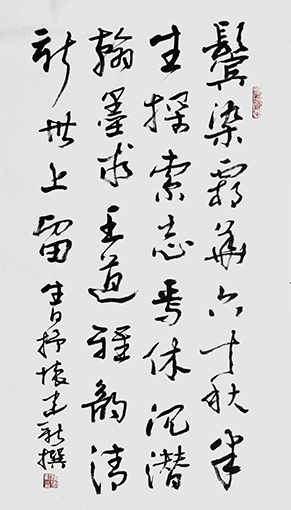 鬢染霜華六十秋半
生探索志焉休沉潜
翰墨求王道雅韵清
新世上留 生日抒懷建新撰